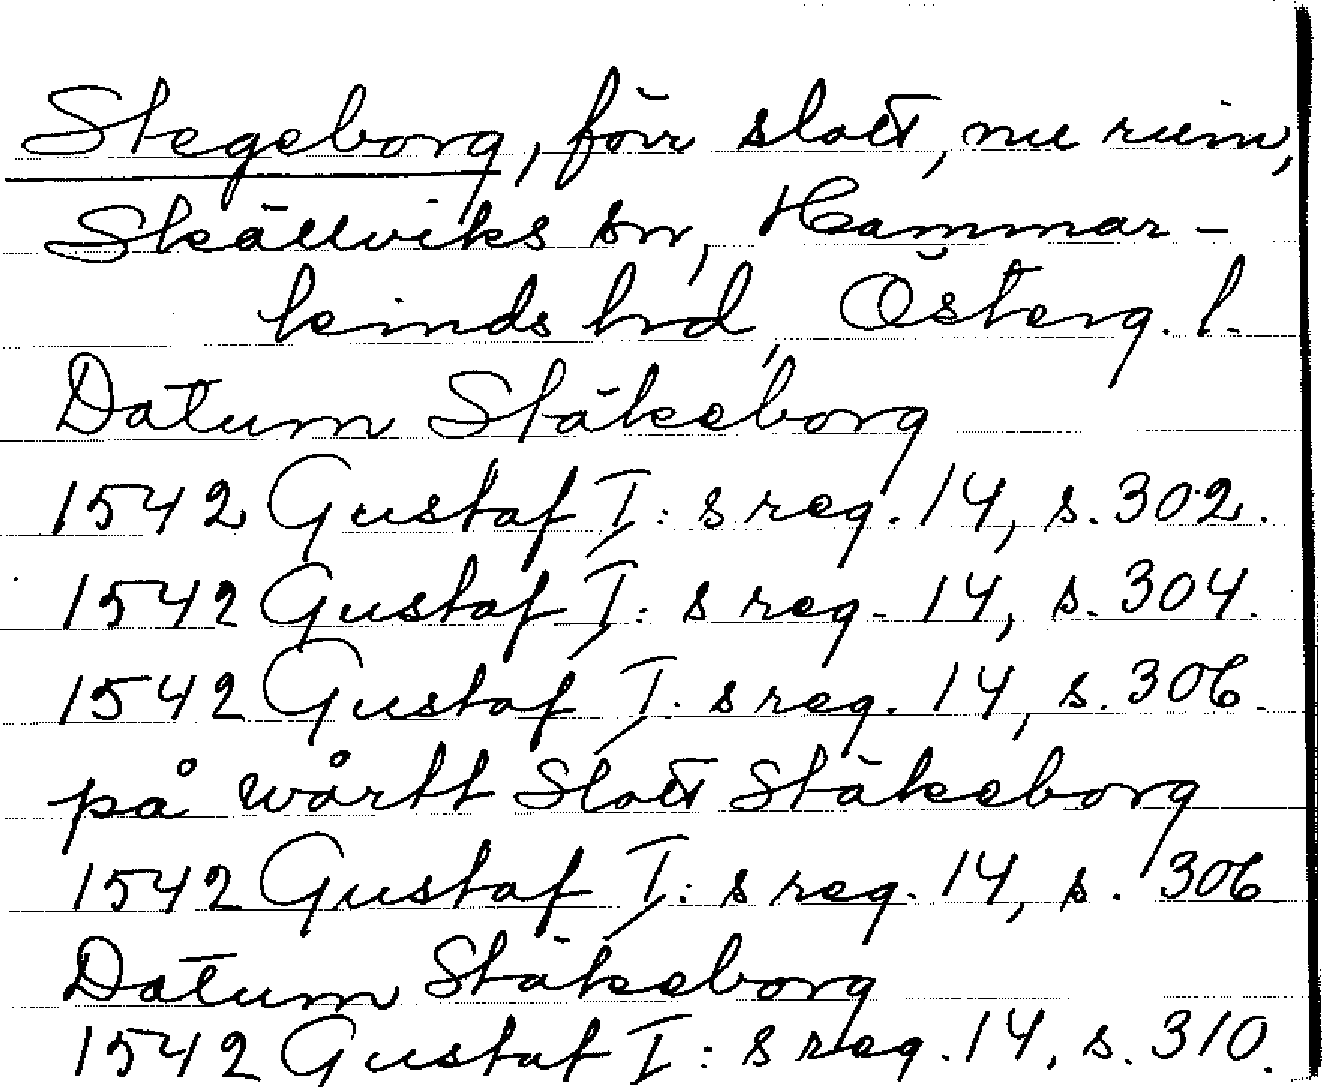 Stegeborg, förr slott, nu ruin,
Skällviks sn, Hammar-
kinds hd, Österg. l.
Datum Stäkeborg
1542 Gustaf I:s reg. 14, s. 302.
1542 Gustaf I:s reg. 14, s. 304.
1542 Gustaf I:s reg. 14, s. 306.
på wårtt Slott Stäkeborg
1542 Gustaf I:s reg. 14, s. 306
Datum Stäkeborg
1542 Gustaf I:s reg. 14, s. 310.